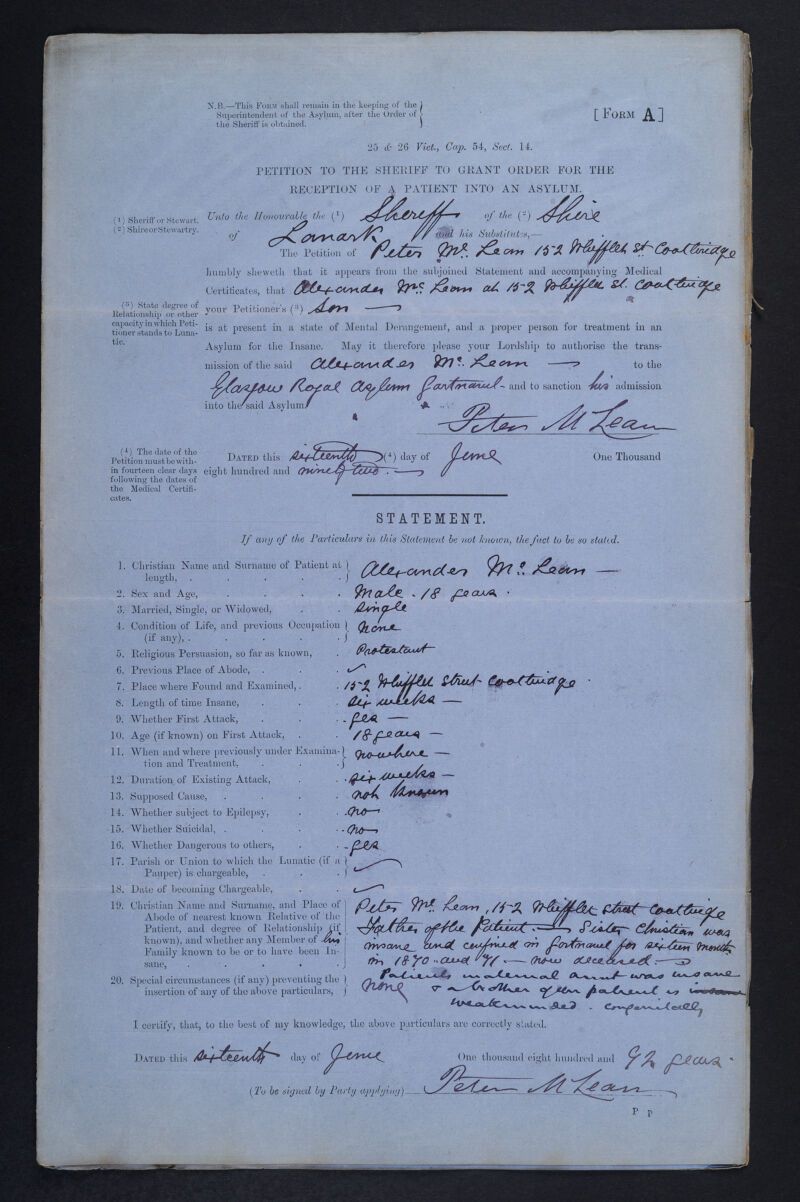 N.B.—This Form shall remain in the keeping of the
Superintendent of the Asylum, after the Order of
the Sheriff is obtained.
[Form A]
25 & 26 Vict., Cap. 54, Sect. 14.
PETITION TO THE SHERIFF TO GRANT ORDER FOR THE
RECEPTION OF A PATIENT INTO AN ASYLUM.
(1) Sheriff or Stewart.
(2) Shire or Stewartry.
Unto the Honourable the (1) Sheriff of the (2) Shire
of Lanark and his Substitutes,—
The Petition of Peter Mc. Lean 152 Whifflet St Coatbridge
humbly sheweth that it appears from the subjoined Statement and accompanying Medical
Certificates, that Alexander Mc. Lean at 152 Whifflet St. Coatbridge
(3) State degree of
Relationship or other
capacity in which Peti-
tioner stands to Luna-
tic.
your Petitioner's (3) Son —
is at present in a state of Mental Derangement, and a proper person for treatment in an
Asylum for the Insane. May it therefore please your Lordship to authorise the trans-
mission of the said Alexander Mc. Lean — to the
Glasgow Royal Asylum Gartnavel - and to sanction his admission
into the said Asylum
Peter McLean
(4) The date of the
Petition must be with-
in fourteen clear days
following the dates of
the Medical Certifi-
cates.
Dated this sixteenth (4) day of June One Thousand
eight hundred and ninety two. —
STATEMENT.
If any of the Particulars in this Statement be not known, the fact to be so stated.
1. Christian Name and Surname of Patient at
length, . Alexander Mc. Lean —
2. Sex and Age, Male . 18 years .
3. Married, Single, or Widowed, Single
4. Condition of Life, and previous Occupation
(if any), . None
5. Religious Persuasion, so far as known, Protestant
6. Previous Place of Abode, ✓
7. Place where Found and Examined, . 152 Whifflet Street Coatbridge
8. Length of time Insane, Six weeks —
9. Whether First Attack, yes —
10. Age (if known) on First Attack, 18 years —
11. When and where previously under Examina-
tion and Treatment, nowhere —
12. Duration of Existing Attack, six weeks —
13. Supposed Cause, not known
14. Whether subject to Epilepsy, no
15. Whether Suicidal, . no
16. Whether Dangerous to others, yes
17. Parish or Union to which the Lunatic (if a
Pauper) is chargeable, ✓
18. Date of becoming Chargeable, ✓
19. Christian Name and Surname, and Place of Peter Mc. Lean, 152 Whifflet Street Coatbridge
Abode of nearest known Relative of the
Patient, and degree of Relationship (if Father of the Patient. — Sister Christian was
known), and whether any Member of his insane and confined in Gartnavel for sixteen months
Family known to be or to have been In-
sane, in 1870 . and 71 . — now deceased —
Patients maternal aunt was insane
20. Special circumstances (if any) preventing the
insertion of any of the above particulars, none & a brother of the patient is insane
weakminded . congenitally
I certify, that, to the best of my knowledge, the above particulars are correctly stated.
Dated this sixteenth day of June One thousand eight hundred and 92 years.
(To be signed by Party applying) Peter McLean
P P